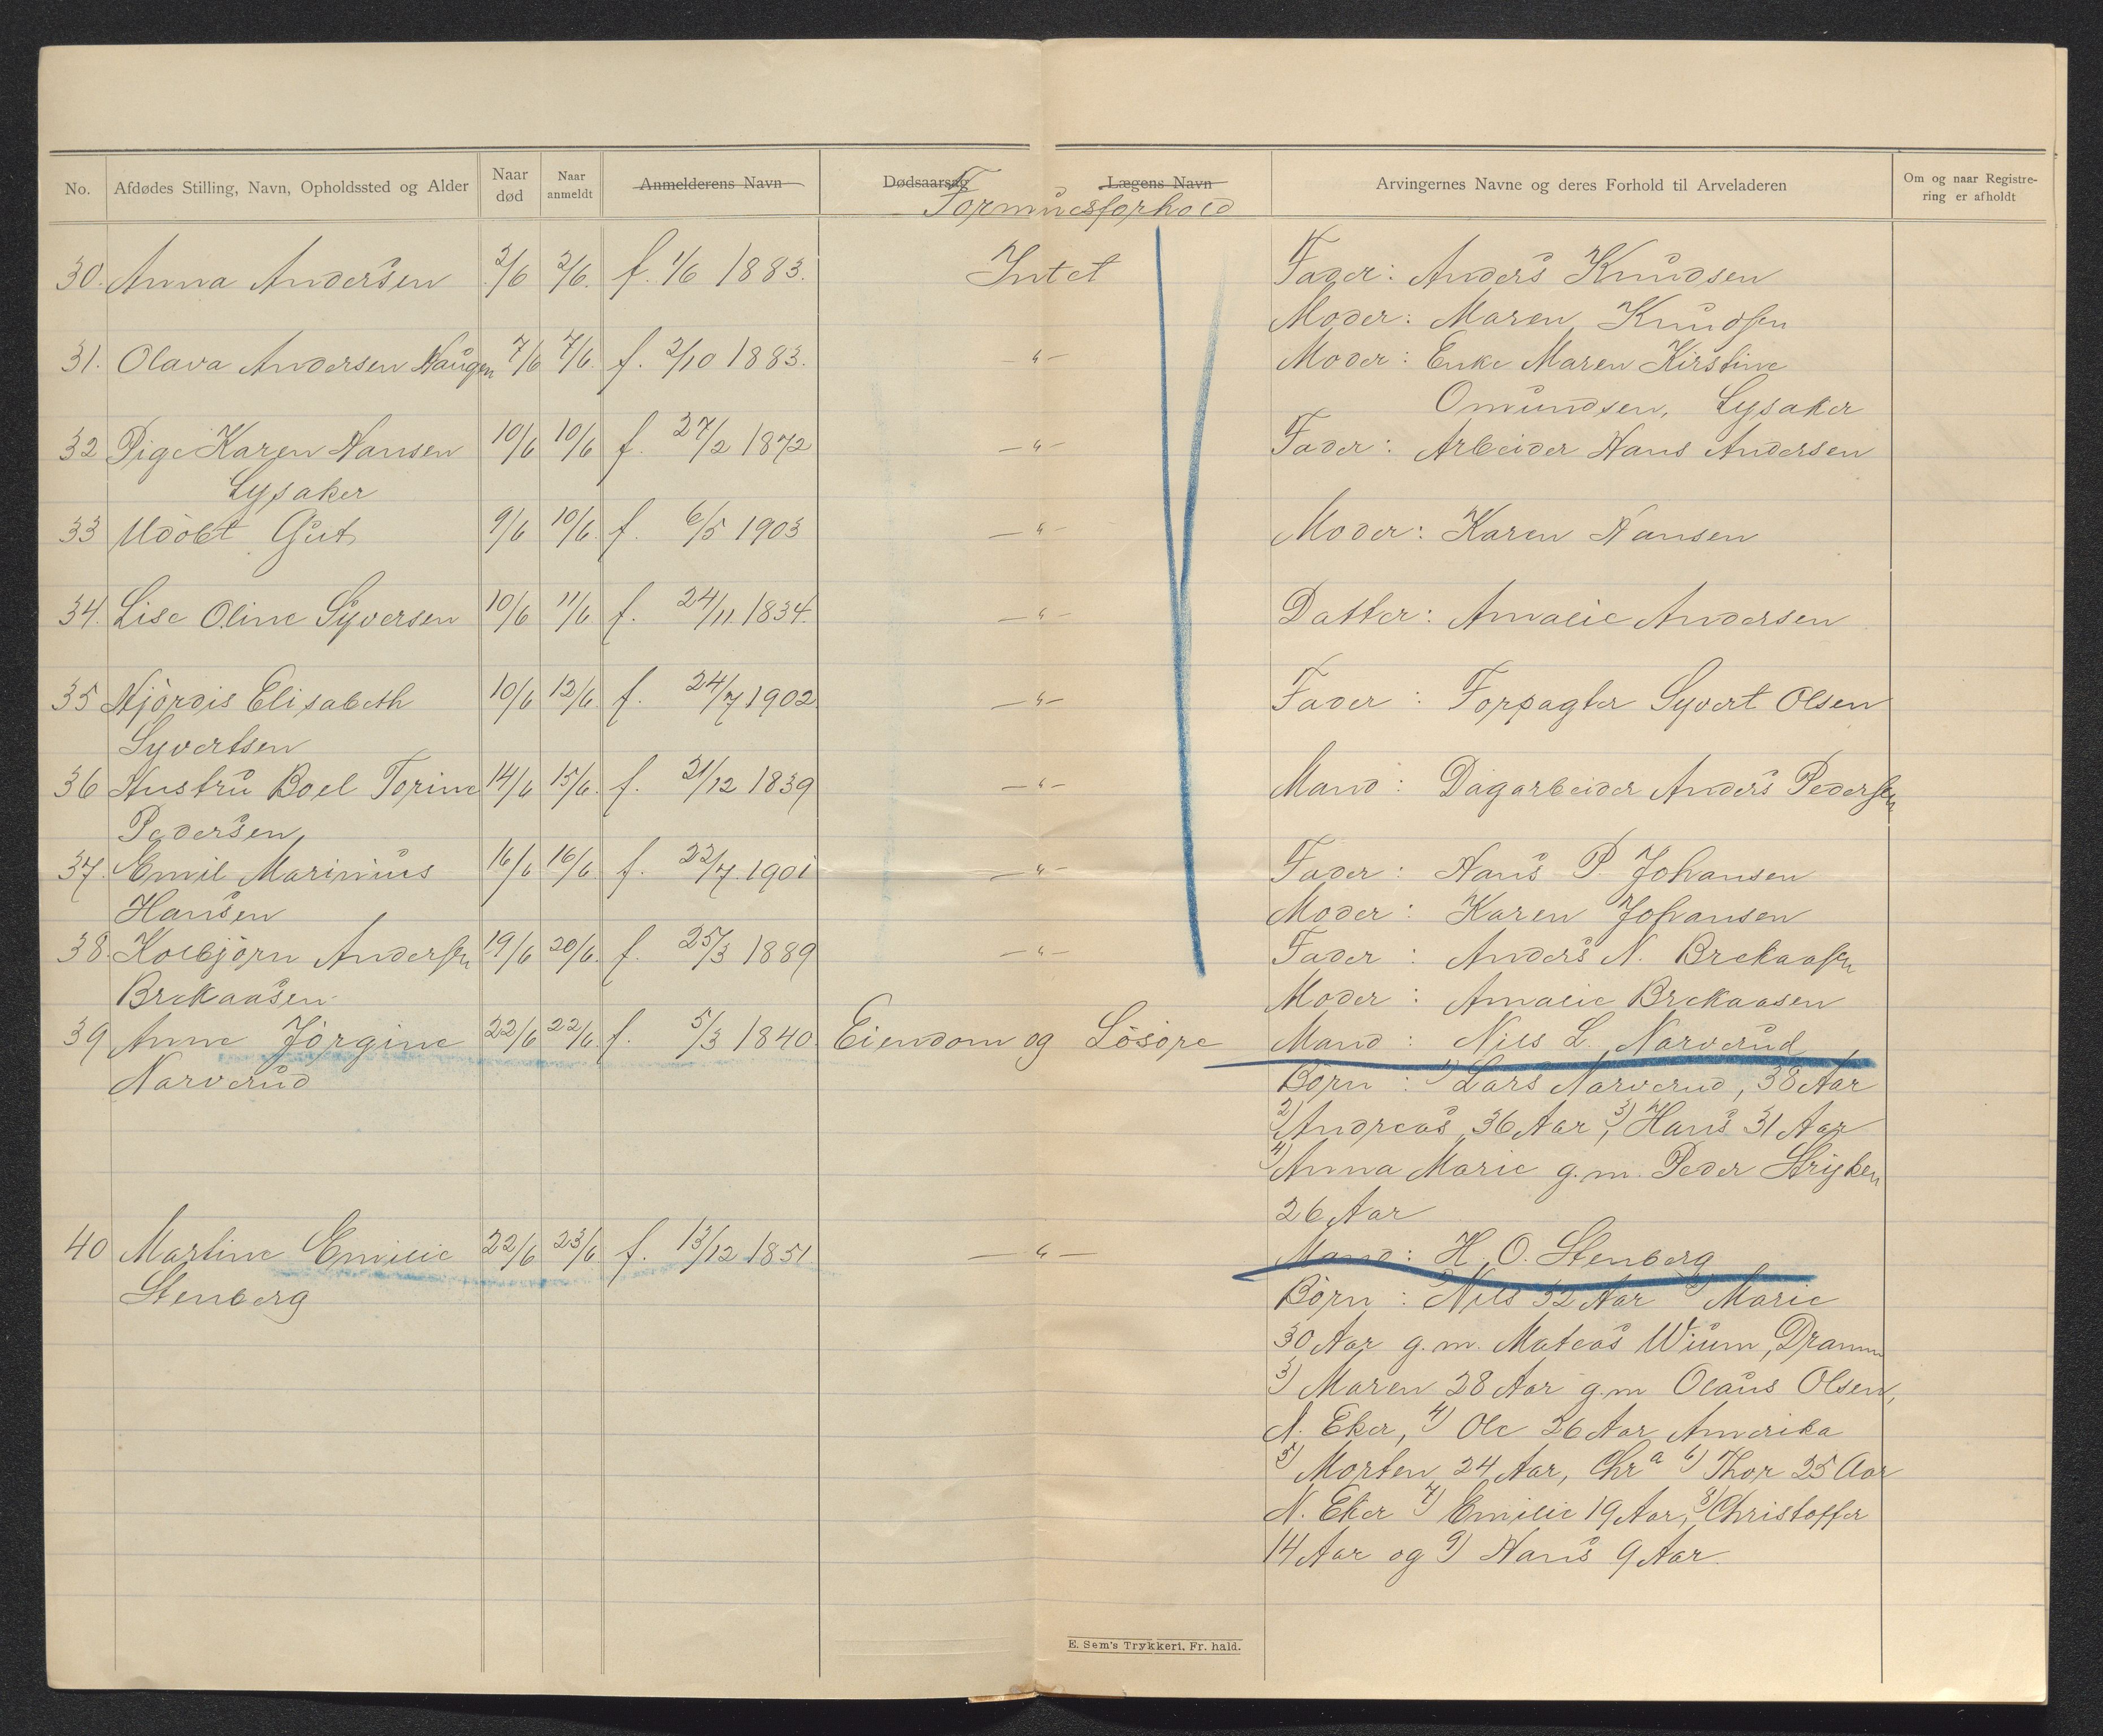 No. Afdødes Stilling, Navn, Opholdssted og Alder Naar død Naar anmeldt Anmelderens Navn Dødsaarsag Lægens Navn Arvingernes Navne og deres Forhold til Arveladeren Om og naar Registrering er afholdt
Formuesforhold
30. Anna Andersen 2/6 2/6. f. 1/6 1883. Intet Fader: Anders Knudsen
Moder: Maren Knudsen
31. Olava Andersen Haugen 7/6 7/6. f. 2/10 1883. —"— Moder: Enke Maren Kirstine
Omundsen, Lysaker
32 Pige Karen Hansen 10/6 10/6 f. 27/2 1872 —"— Fader: Arbeider Hans Andersen
Lysaker
33 Udøbt Gut 9/6 10/6. f. 6/5 1903 —"— Moder: Karen Hansen
34. Lise Oline Syversen 10/6 11/6 f. 24/11 1834. —"— Datter: Amalie Andersen
35 Hjørdis Elisabeth 10/6 12/6 f. 24/7 1902 —"— Fader: Forpagter Syvert Olsen
Syvertsen
36 Hustru Boel Torine 14/6 15/6. f. 21/12 1839 —"— Mand: Dagarbeider Anders Pedersen
Pedersen
37. Emil Marinius 16/6 16/6. f. 22/7 1901 —"— Fader: Hans P. Johansen
Hansen Moder: Karen Johansen
38. Kolbjørn Andersen 19/6 20/6. f. 25/3 1889 —"— Fader: Anders N. Brekaasen
Brekaasen Moder: Amalie Brekaasen
39 Anne Jørgine 22/6 22/6. f. 5/3 1840. Eiendom og Løsøre Mand: Nils L. Narverud
Narverud Børn: 1) Lars Narverud, 38 Aar
2) Andreas 36 Aar, 3) Hans 31 Aar
4) Anna Marie g.m. Peder Stryken
26 Aar
40 Martine Emilie 22/6 23/6 f. 13/12 1851 —"— Mand: H. O. Stenberg
Stenberg Børn: 1) Nils 32 Aar 2) Marie
30 Aar g.m. Mateas Wium, Dramm
3) Maren 28 Aar g.m Olaus Olsen,
N. Eker, 4) Ole 26 Aar Amerika
5) Morten 24 Aar, Chra 6) Thor 25 Aar
N. Eker 7) Emilie 19 Aar, 8) Christoffer
14 Aar og 9) Hans 9 Aar.
E. Sem's Trykkeri, Fr. hald.